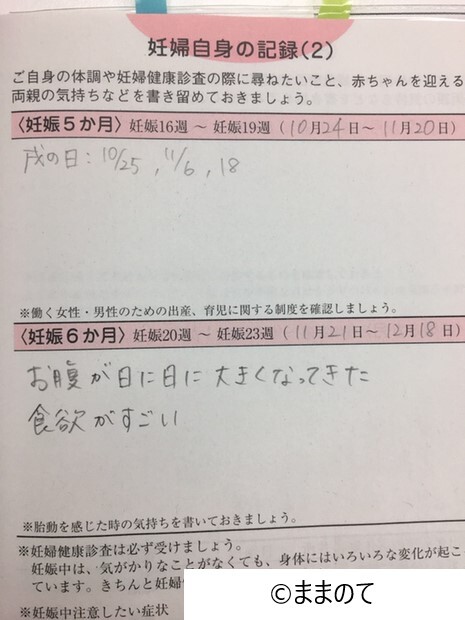 妊婦自身の記録(2)
ご自身の体調や妊婦健康診査の際に尋ねたいこと、赤ちゃんを迎える
両親の気持ちなどを書き留めておきましょう。
〈妊娠5か月〉妊娠16週 ~ 妊娠19週（10月24日~ 11月20日）
戌の日：10/25 , 11/6 , 18
※働く女性・男性のための出産、育児に関する制度を確認しましょう。
〈妊娠6か月〉妊娠20週 ~ 妊娠23週（11月21日~ 12月18日）
お腹が日に日に大きくなってきた
食欲がすごい
※胎動を感じた時の気持ちを書いておきましょう。
※妊婦健康診査は必ず受けましょう。
妊娠中は、気がかりなことがなくても、身体にはいろいろな変化が起こ
ています。きちんと妊婦
※妊娠中注意したい症状
©ままのて